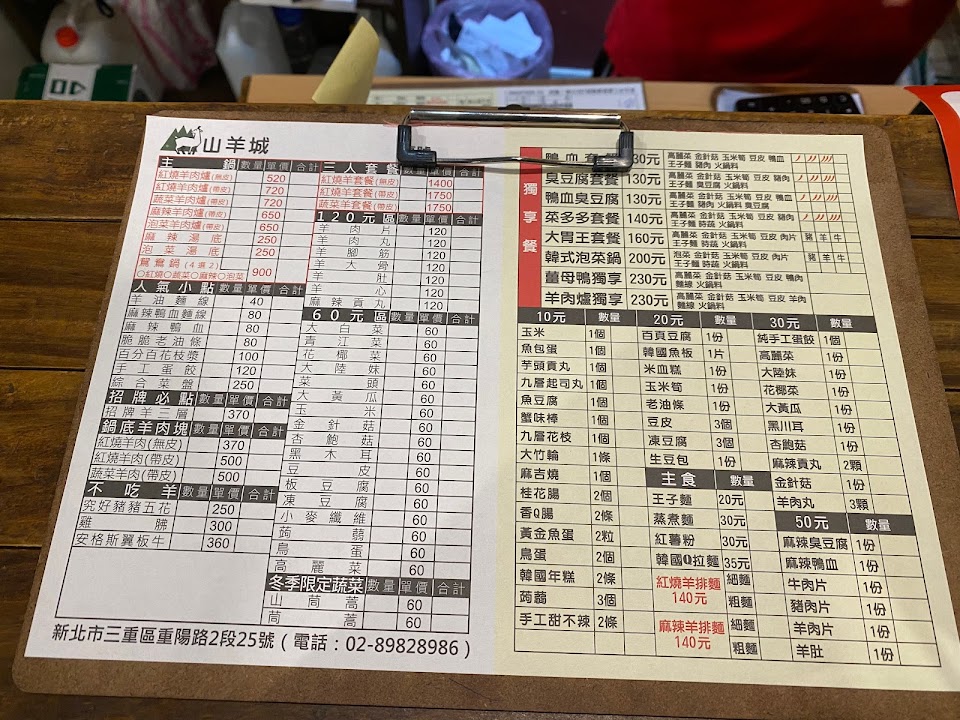 山羊城
主鍋 數量 單價 合計
紅燒羊肉爐(無皮) 520
紅燒羊肉爐(帶皮) 720
蔬菜羊肉爐(帶皮) 720
麻辣羊肉爐(帶皮) 650
泡菜羊肉爐(帶皮) 650
麻辣湯底 250
泡菜湯底 250
鴛鴦鍋(4選2) 900
○紅燒○蔬菜○麻辣○泡菜
人氣小點 數量 單價 合計
羊油麵線 40
麻辣鴨血麵線 80
麻辣鴨血 80
脆脆老油條 80
百分百花枝漿 100
手工蛋餃 120
綜合菜盤 250
招牌必點 數量 單價 合計
招牌羊三層 370
鍋底羊肉塊 數量 單價 合計
紅燒羊肉(無皮) 370
紅燒羊肉(帶皮) 500
蔬菜羊肉(帶皮) 500
不吃羊 數量 單價 合計
究好豬豬五花 250
雞腿 300
安格斯翼板牛 360
三人套餐 數量 單價 合計
紅燒羊套餐(無皮) 1400
紅燒羊套餐(帶皮) 1750
蔬菜羊套餐(帶皮) 1750
120元區 數量 單價 合計
羊肉片 120
羊肉丸 120
羊腳筋 120
羊大骨 120
羊肚 120
羊心 120
麻辣貢丸 120
60元區 數量 單價 合計
大白菜 60
青江菜 60
花椰菜 60
大陸妹 60
菜頭 60
大黃瓜 60
玉米 60
金針菇 60
杏鮑菇 60
黑木耳 60
豆皮 60
板豆腐 60
凍豆腐 60
小麥纖維 60
蒟蒻 60
鳥蛋 60
高麗菜 60
冬季限定蔬菜 數量 單價 合計
山茼蒿 60
茼蒿 60
新北市三重區重陽路2段25號(電話:02-89828986)
獨享餐
鴨血套餐 30元 高麗菜 金針菇 玉米筍 豆皮 鴨血
王子麵 豬肉 火鍋料
臭豆腐套餐 130元 高麗菜 金針菇 玉米筍 豆皮 豬肉
王子麵 臭豆腐 火鍋料
鴨血臭豆腐 130元 高麗菜 金針菇 玉米筍 豆皮 鴨血
王子麵 豬肉 火鍋料 臭豆腐
菜多多套餐 140元 高麗菜 金針菇 玉米筍 豆皮 豬肉
王子麵 時蔬 火鍋料
大胃王套餐 160元 高麗菜 金針菇 玉米筍 豆皮 肉片
王子麵 時蔬 火鍋料 豬 羊 牛
韓式泡菜鍋 200元 泡菜 金針菇 玉米筍 豆皮 肉片
王子麵 時蔬 火鍋料 豬 羊 牛
薑母鴨獨享 230元 高麗菜 金針菇 玉米筍 豆皮 鴨肉
麵線 火鍋料
羊肉爐獨享 230元 高麗菜 金針菇 玉米筍 豆皮 羊肉
麵線 火鍋料
10元 數量
玉米 1個
魚包蛋 1個
芋頭貢丸 1個
九層起司丸 1個
魚豆腐 1個
蟹味棒 1個
九層花枝 1個
大竹輪 1條
麻吉燒 1個
桂花腸 2個
香Q腸 2條
黃金魚蛋 2粒
鳥蛋 2個
韓國年糕 2條
蒟蒻 3個
手工甜不辣 2條
20元 數量
百頁豆腐 1個
韓國魚板 1片
米血糕 1份
玉米筍 1份
老油條 1份
豆皮 3個
凍豆腐 3個
生豆包 1份
主食 數量
王子麵 20元
蒸煮麵 30元
紅薯粉 30元
韓國Q拉麵 35元
紅燒羊排麵 140元 細麵
粗麵
麻辣羊排麵 140元 細麵
粗麵
30元 數量
純手工蛋餃 1個
高麗菜 1份
大陸妹 1份
花椰菜 1份
大黃瓜 1份
黑川耳 1份
杏鮑菇 1份
麻辣貢丸 2顆
金針菇 1份
羊肉丸 3顆
50元 數量
麻辣臭豆腐 1份
麻辣鴨血 1份
牛肉片 1份
豬肉片 1份
羊肉片 1份
羊肚 1份